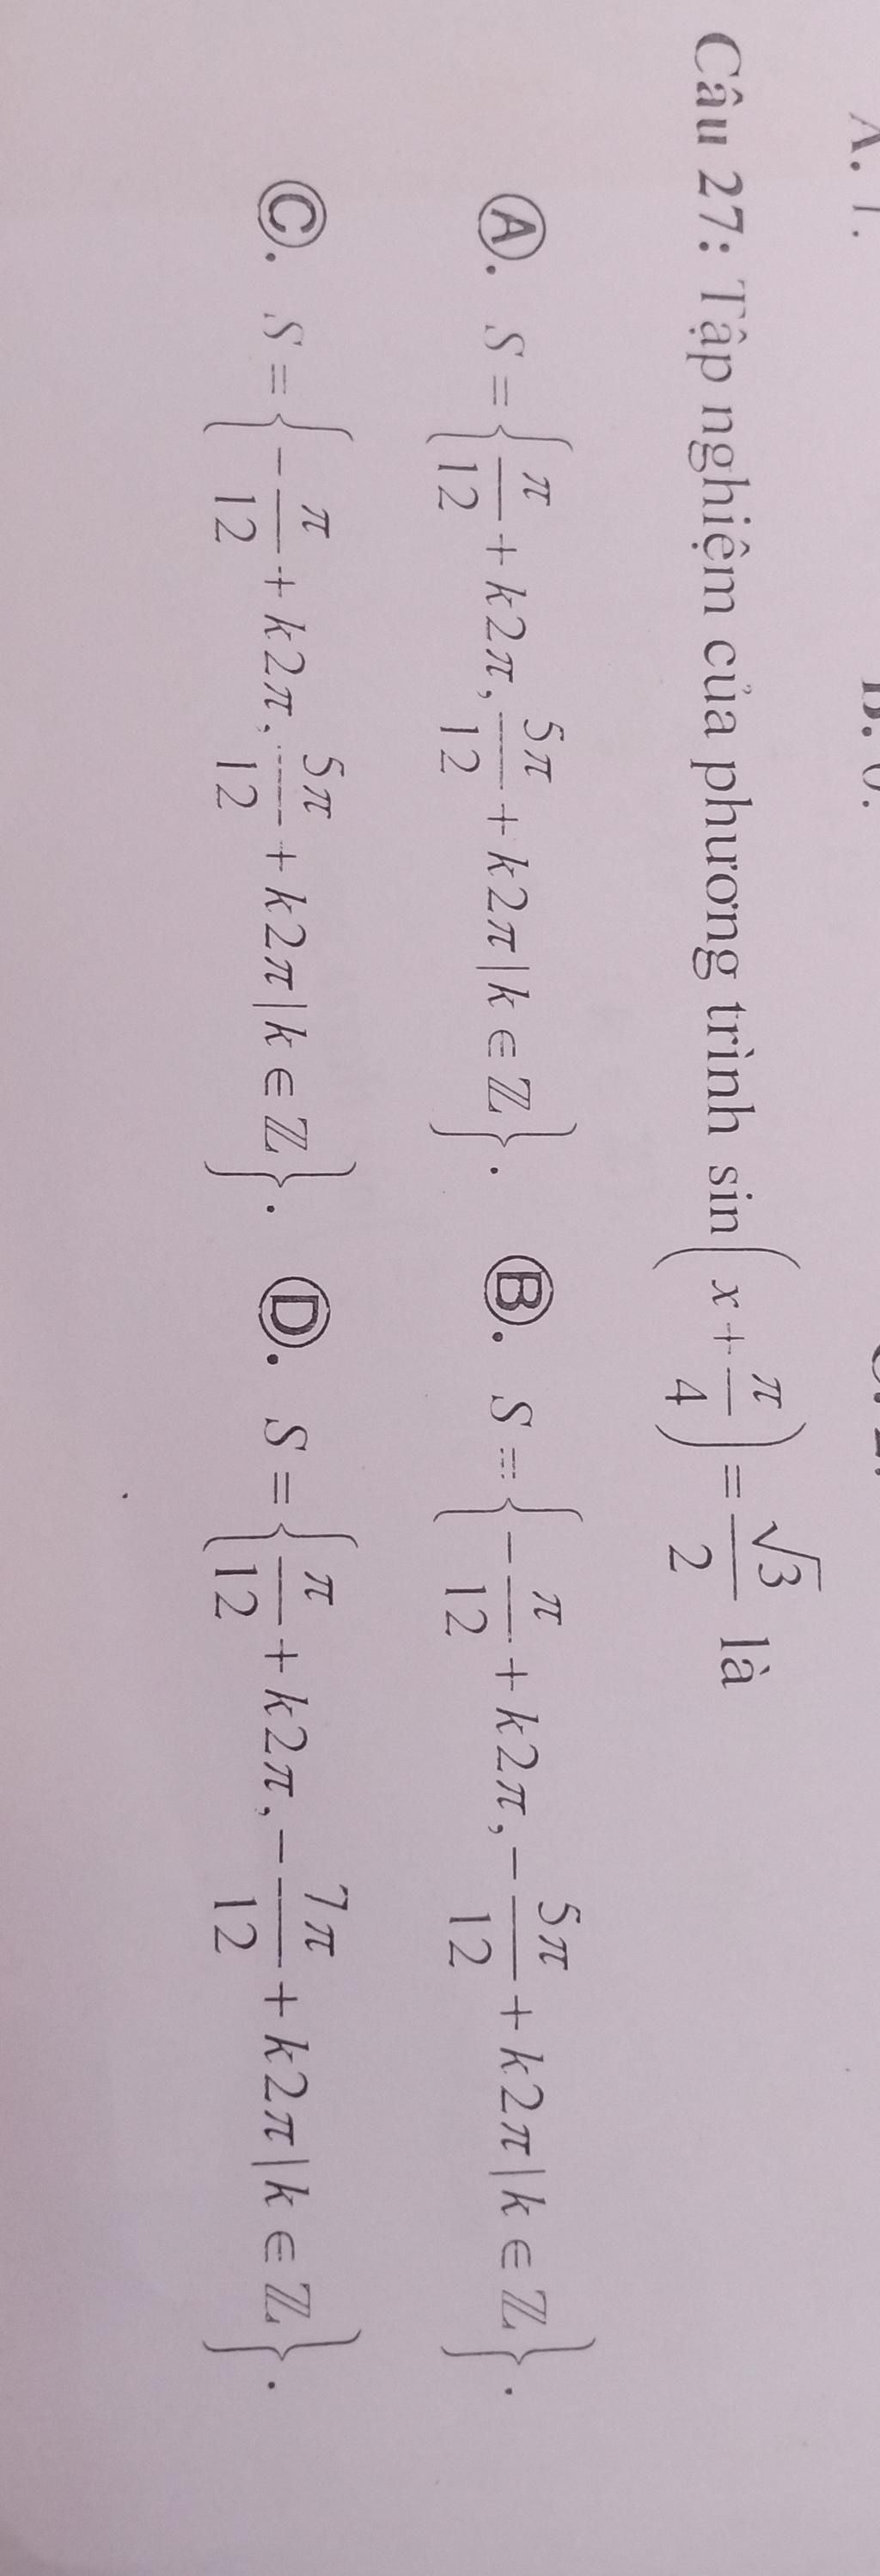 A. 1.
Câu 27: Tập nghiệm của phương trình sin(x + π/4) = √3/2 là
Ⓐ. S = {π/12 + k2π, 5π/12 + k2π | k ∈ ℤ}. Ⓑ. S = {-π/12 + k2π, -5π/12 + k2π | k ∈ ℤ}.
Ⓒ. S = {-π/12 + k2π, 5π/12 + k2π | k ∈ ℤ}. Ⓓ. S = {π/12 + k2π, -7π/12 + k2π | k ∈ ℤ}.